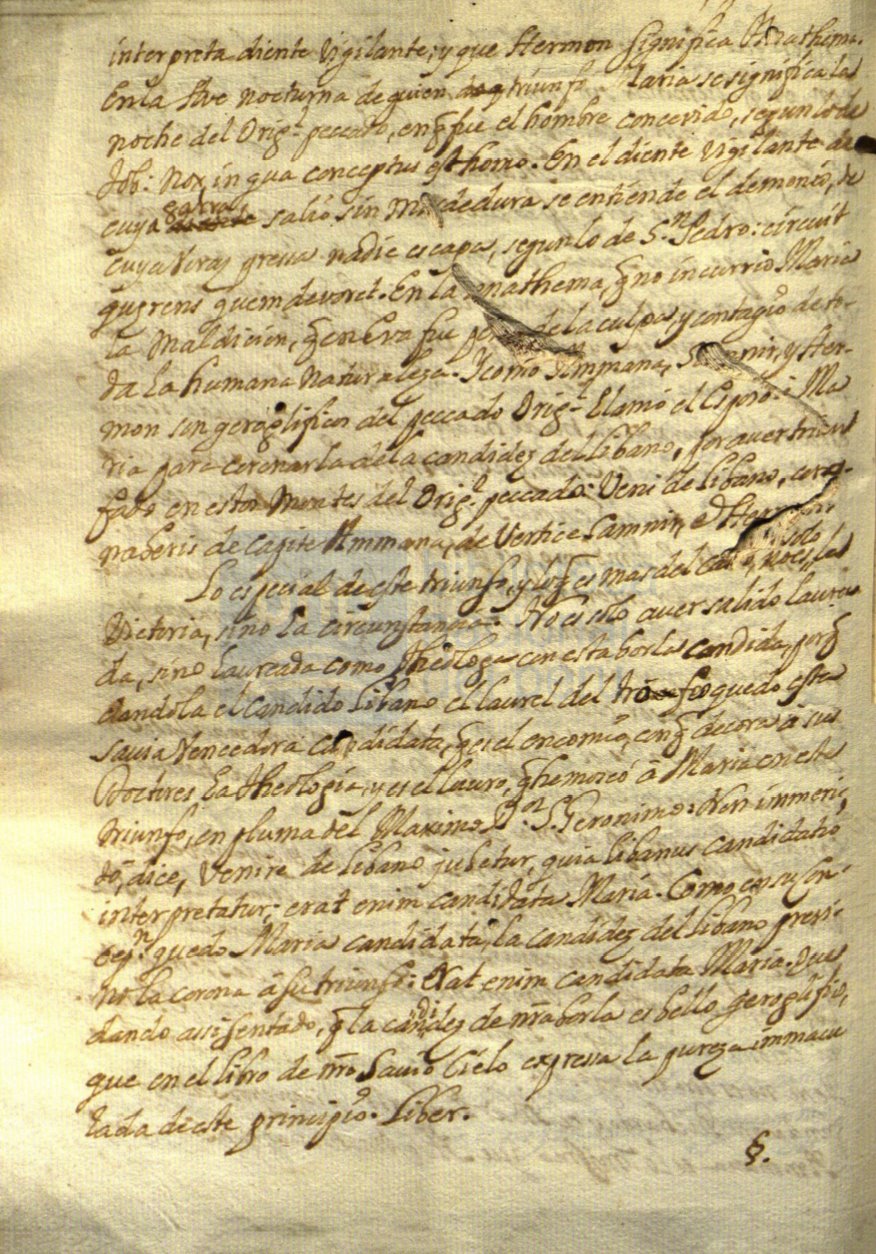 interpreta diente Vigilante, y que Hermon Significa Anathema.
En la Ave nocturna de quien triunfó Maria se significa la
noche del Orig.l peccado, en q̃ fue el hombre concevido, segun lo de
Job: Nox, in qua conceptus est homo. En el diente Vigilante de
cuya garra salió sin mordedura se entiende el demonio, de
cuya presa nadie escapa, segun lo de S.n Pedro: circuit
quęrens quem devoret. En la Anathema, q̃ no incurrió Maria
la Maldicion, q̃ en Eva fue de la culpa, y contagio de to-
da la humana Naturaleza. Y como Ammana, Samnir, y Her-
mon sun geroglificos del peccado Orig.l Llamó el Esposo à Ma
ria para coronarla de la candidez del Libano, por aver triun
fado en estos Montes del Orig.l peccado: Veni de Libano, coro-
naberis de capite Ammana, de Vertice Samnir, et Hermon
Lo especial de este triunfo, y lo q̃ es mas del caso, no es solo la
Victoria, sino la circunstancia. No es solo aver salido laurea
da, sino laureada como Theologa con esta borla candida, porq̃
dandola el candido Libano el laurel del triunfo quedo esta
savia Vencedora candidata, q̃ es el encomio, con q̃ decora à sus
Doctores la Theologia, y es el lauro, q̃ à Maria en este
triunfo, en pluma del Maximo D.or S. Geronimo: Non immeri,
tò, dice, Venire de Libano jubetur, quia Libanus candidatio
interpretatur; erat enim candidata Maria. Como en su Con-
cep.n quedo Maria candidata, la candidez del Libano previ-
no la corona à su triunfo: Erat enim candidata Maria. Que
dando assi sentado, q̃ la candidez de nr̃a borla es bello geroglifico,
que en el libro de nr̃o Savio Cielo expressa la pureza immacu
lada de este principio. Liber.
§.